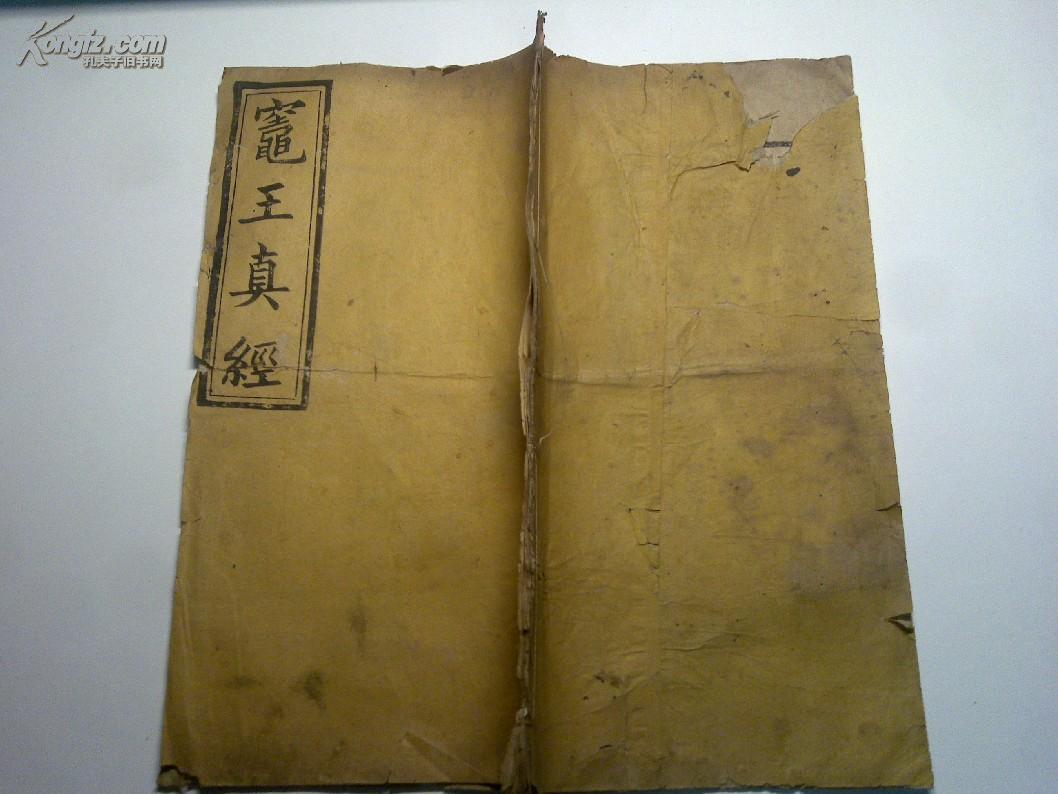 Kongfz.com
孔夫子旧书网
竈王真經